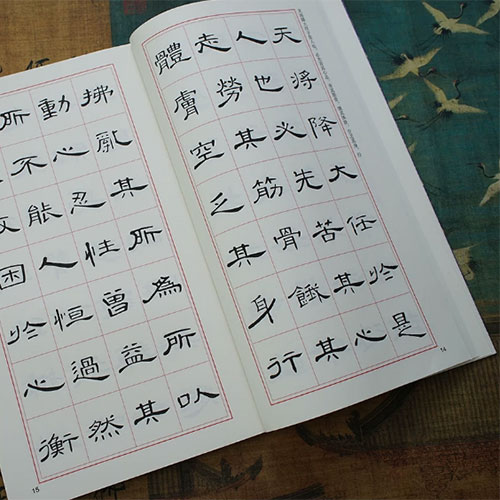 天將降大任於是
人也必先苦其心
志勞其筋骨餓其
體膚空乏其身行
14
拂亂其所爲所以
動心忍性曾益其
所不能人恒過然
困於心衡
15